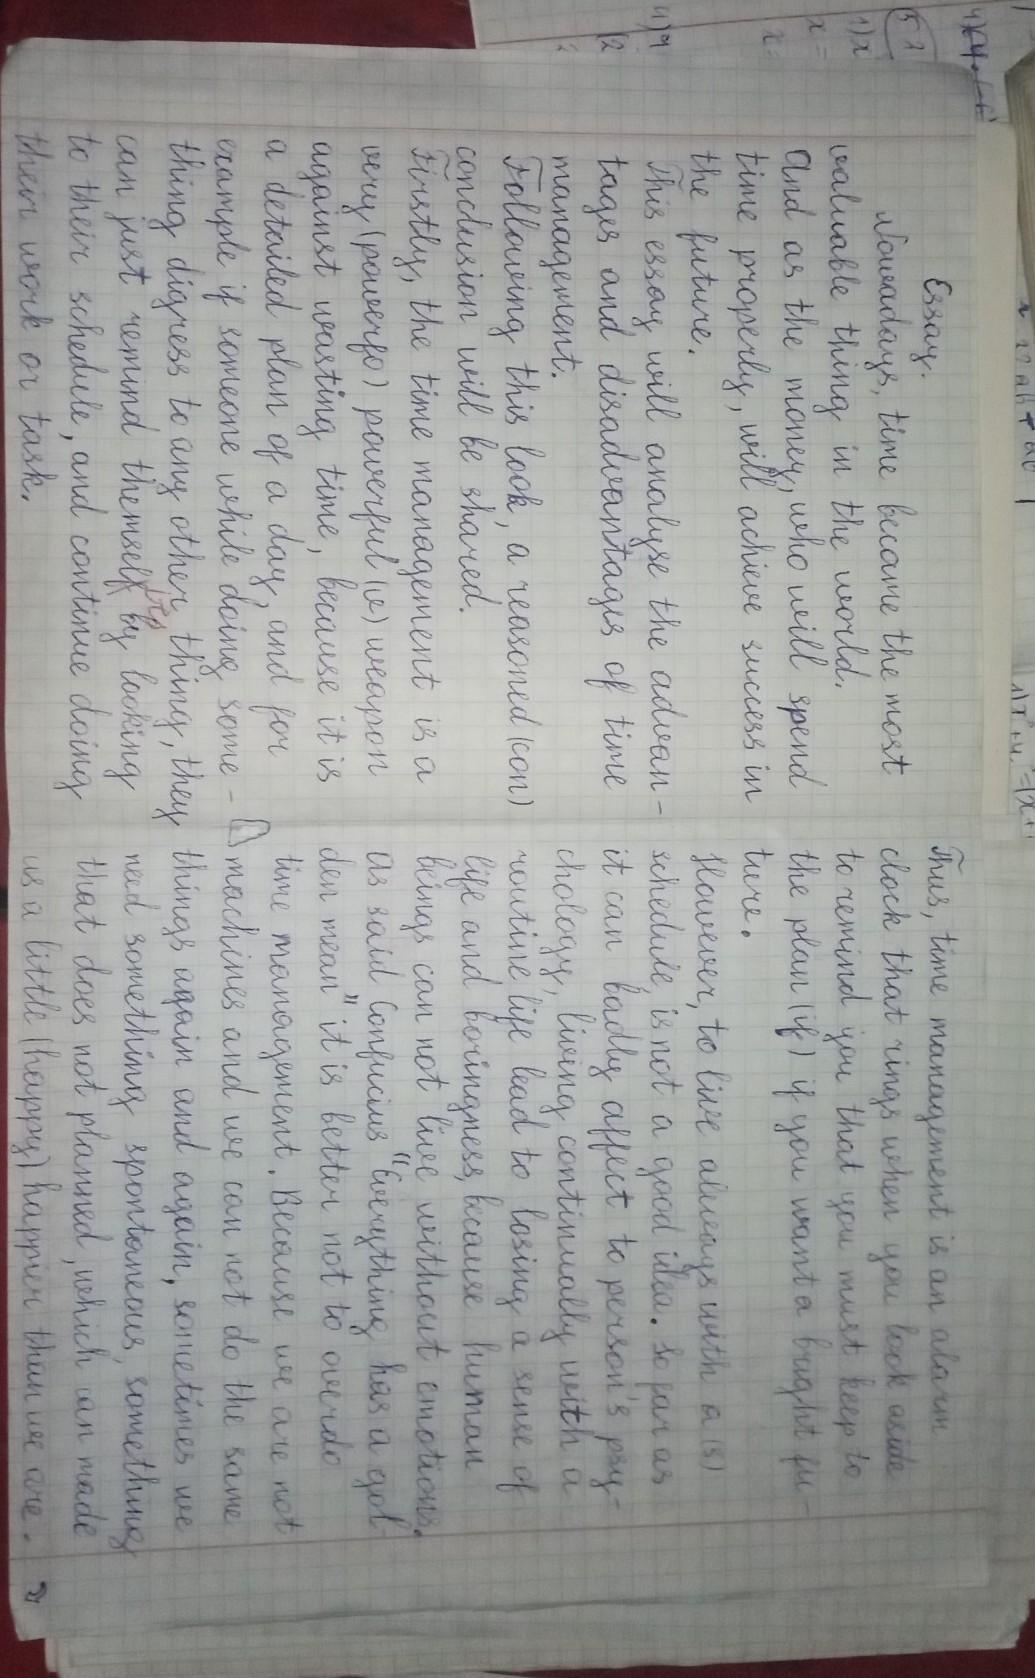 Essay.
Nowadays, time became the most
valuable thing in the world.
And as the money, who will spend
time properly, will achieve success in
the future.
This essay will analyse the advan-
tages and disadvantages of time
management.
Following this look, a reasoned (con)
conclusion will be shared.
Firstly, the time management is a
very (powerfo) powerful (w) weapon
against wasting time, because it is
a detailed plan of a day, and for
example if someone while doing some-
thing digress to any other thing, they
can just remind themself by looking
to their schedule, and continue doing
their work or task.
Thus, time management is an alarm
clock that rings when you look aside
to remind you that you must keep to
the plan (if) if you want a bright fu-
ture.
However, to live always with a (s)
schedule, is not a good idea. So far as
it can badly affect to person's psy-
chology, living continually with a
routine life lead to losing a sense of
life and boringness, because human
beings can not live without emotions.
As said Confucius "Everything has a gol-
den mean" it is better not to overdo
time management. Because we are not
machines and we can not do the same
things again and again, sometimes we
need something spontaneous, something
that does not planned, which can made
us a little (happy) happier than we are.
2